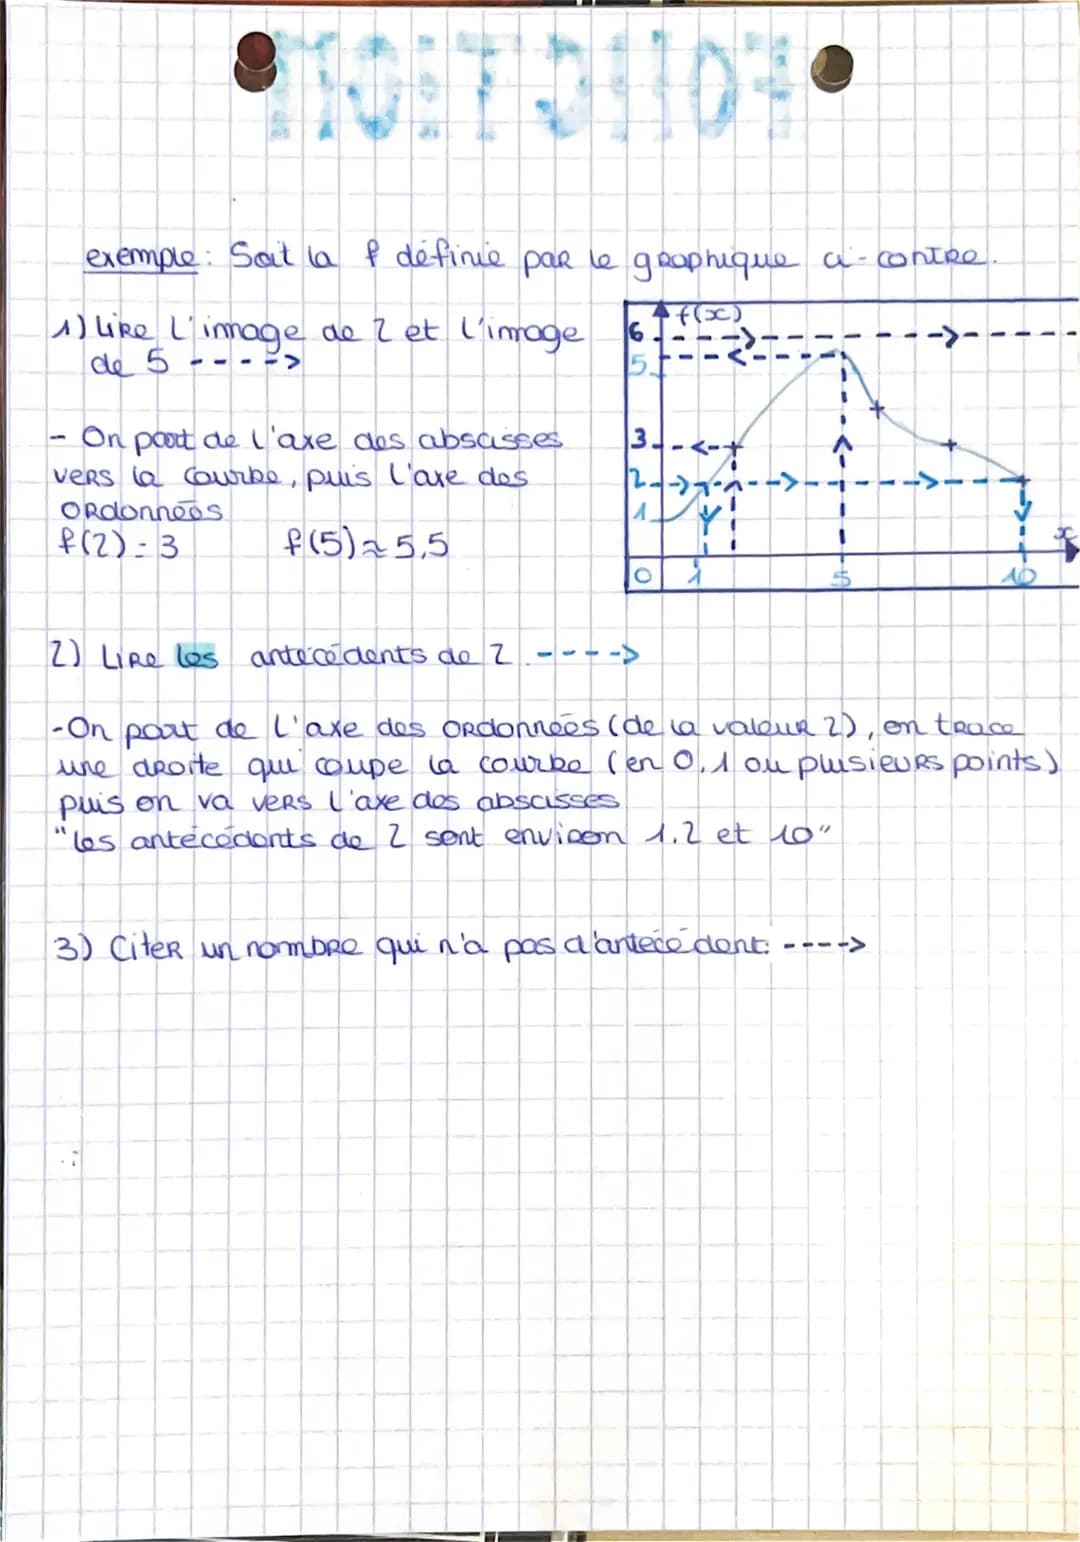 FONCTION
exemple: Soit la f définie par le graphique ci-contre.
1) Lire l'image de 2 et l'image
de 5 ---->
- On part de l'axe des abscisses
vers la courbe, puis l'axe des
ordonnées
f(2) = 3 f(5) ≈ 5,5
f(x)
6
5
3
2
1
0 1 5 10
x
2) Lire les antécédents de 2 ---->
-On part de l'axe des ordonnées (de la valeur 2), on trace
une droite qui coupe la courbe (en 0,1 ou plusieurs points)
puis on va vers l'axe des abscisses
"les antécédents de 2 sont environ 1.2 et 10"
3) Citer un nombre qui n'a pas d'antécédent: ---->